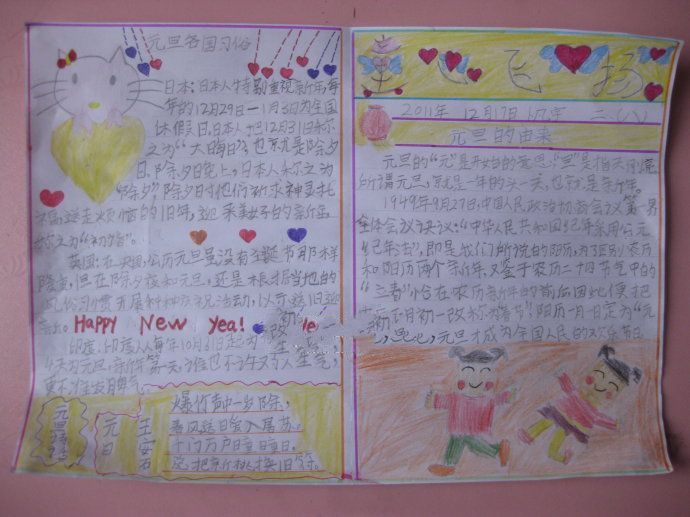 元旦各国习俗
日本:日本人特别重视新年,每
年的12月29日—1月3日为全国
休假日。日本人把12月31日称
之为“大晦日”,也就是除夕
日。除夕日晚上,日本人称之为
“除夕”,除夕时他们祈求神灵托
福,送走烦恼的旧年,迎来美好的新年
称之为“初诣”。
英国:在英国,公历元旦虽没有圣诞节那样
隆重,但在除夕夜和元旦,还是根据当地的
风俗习惯开展种种庆祝活动,以示送旧迎
新。
Happy New Yea!
印度:印度人每年10月31日起为
4天为元旦新年第一天,谁也不许对人生气,
更不准发脾气
元旦诗
元日
王安石
爆竹声中一岁除,
春风送日留入屠苏。
千门万户日童日童日。
总把新桃换旧符。
飞扬
2011年 12月17日 三、(八)
元旦的由来
元旦的“元”是开始的意思,“旦”是指天明
所谓元旦,就是一年的头一天,也就是新年。
1949年9月27日,中国人民政治协商会议第一界
全体会议决议:“中华人民共和国纪年采用公元
纪年法”,即是我们所说的阳历,为了区别农历
和阳历两个新年,又鉴于农历二十四节气中的
“立春”恰在农历新年的前后,因此便把
初一改称为“春节”,阳历一月一日定为“元
元旦才成为全国人民的欢乐节日